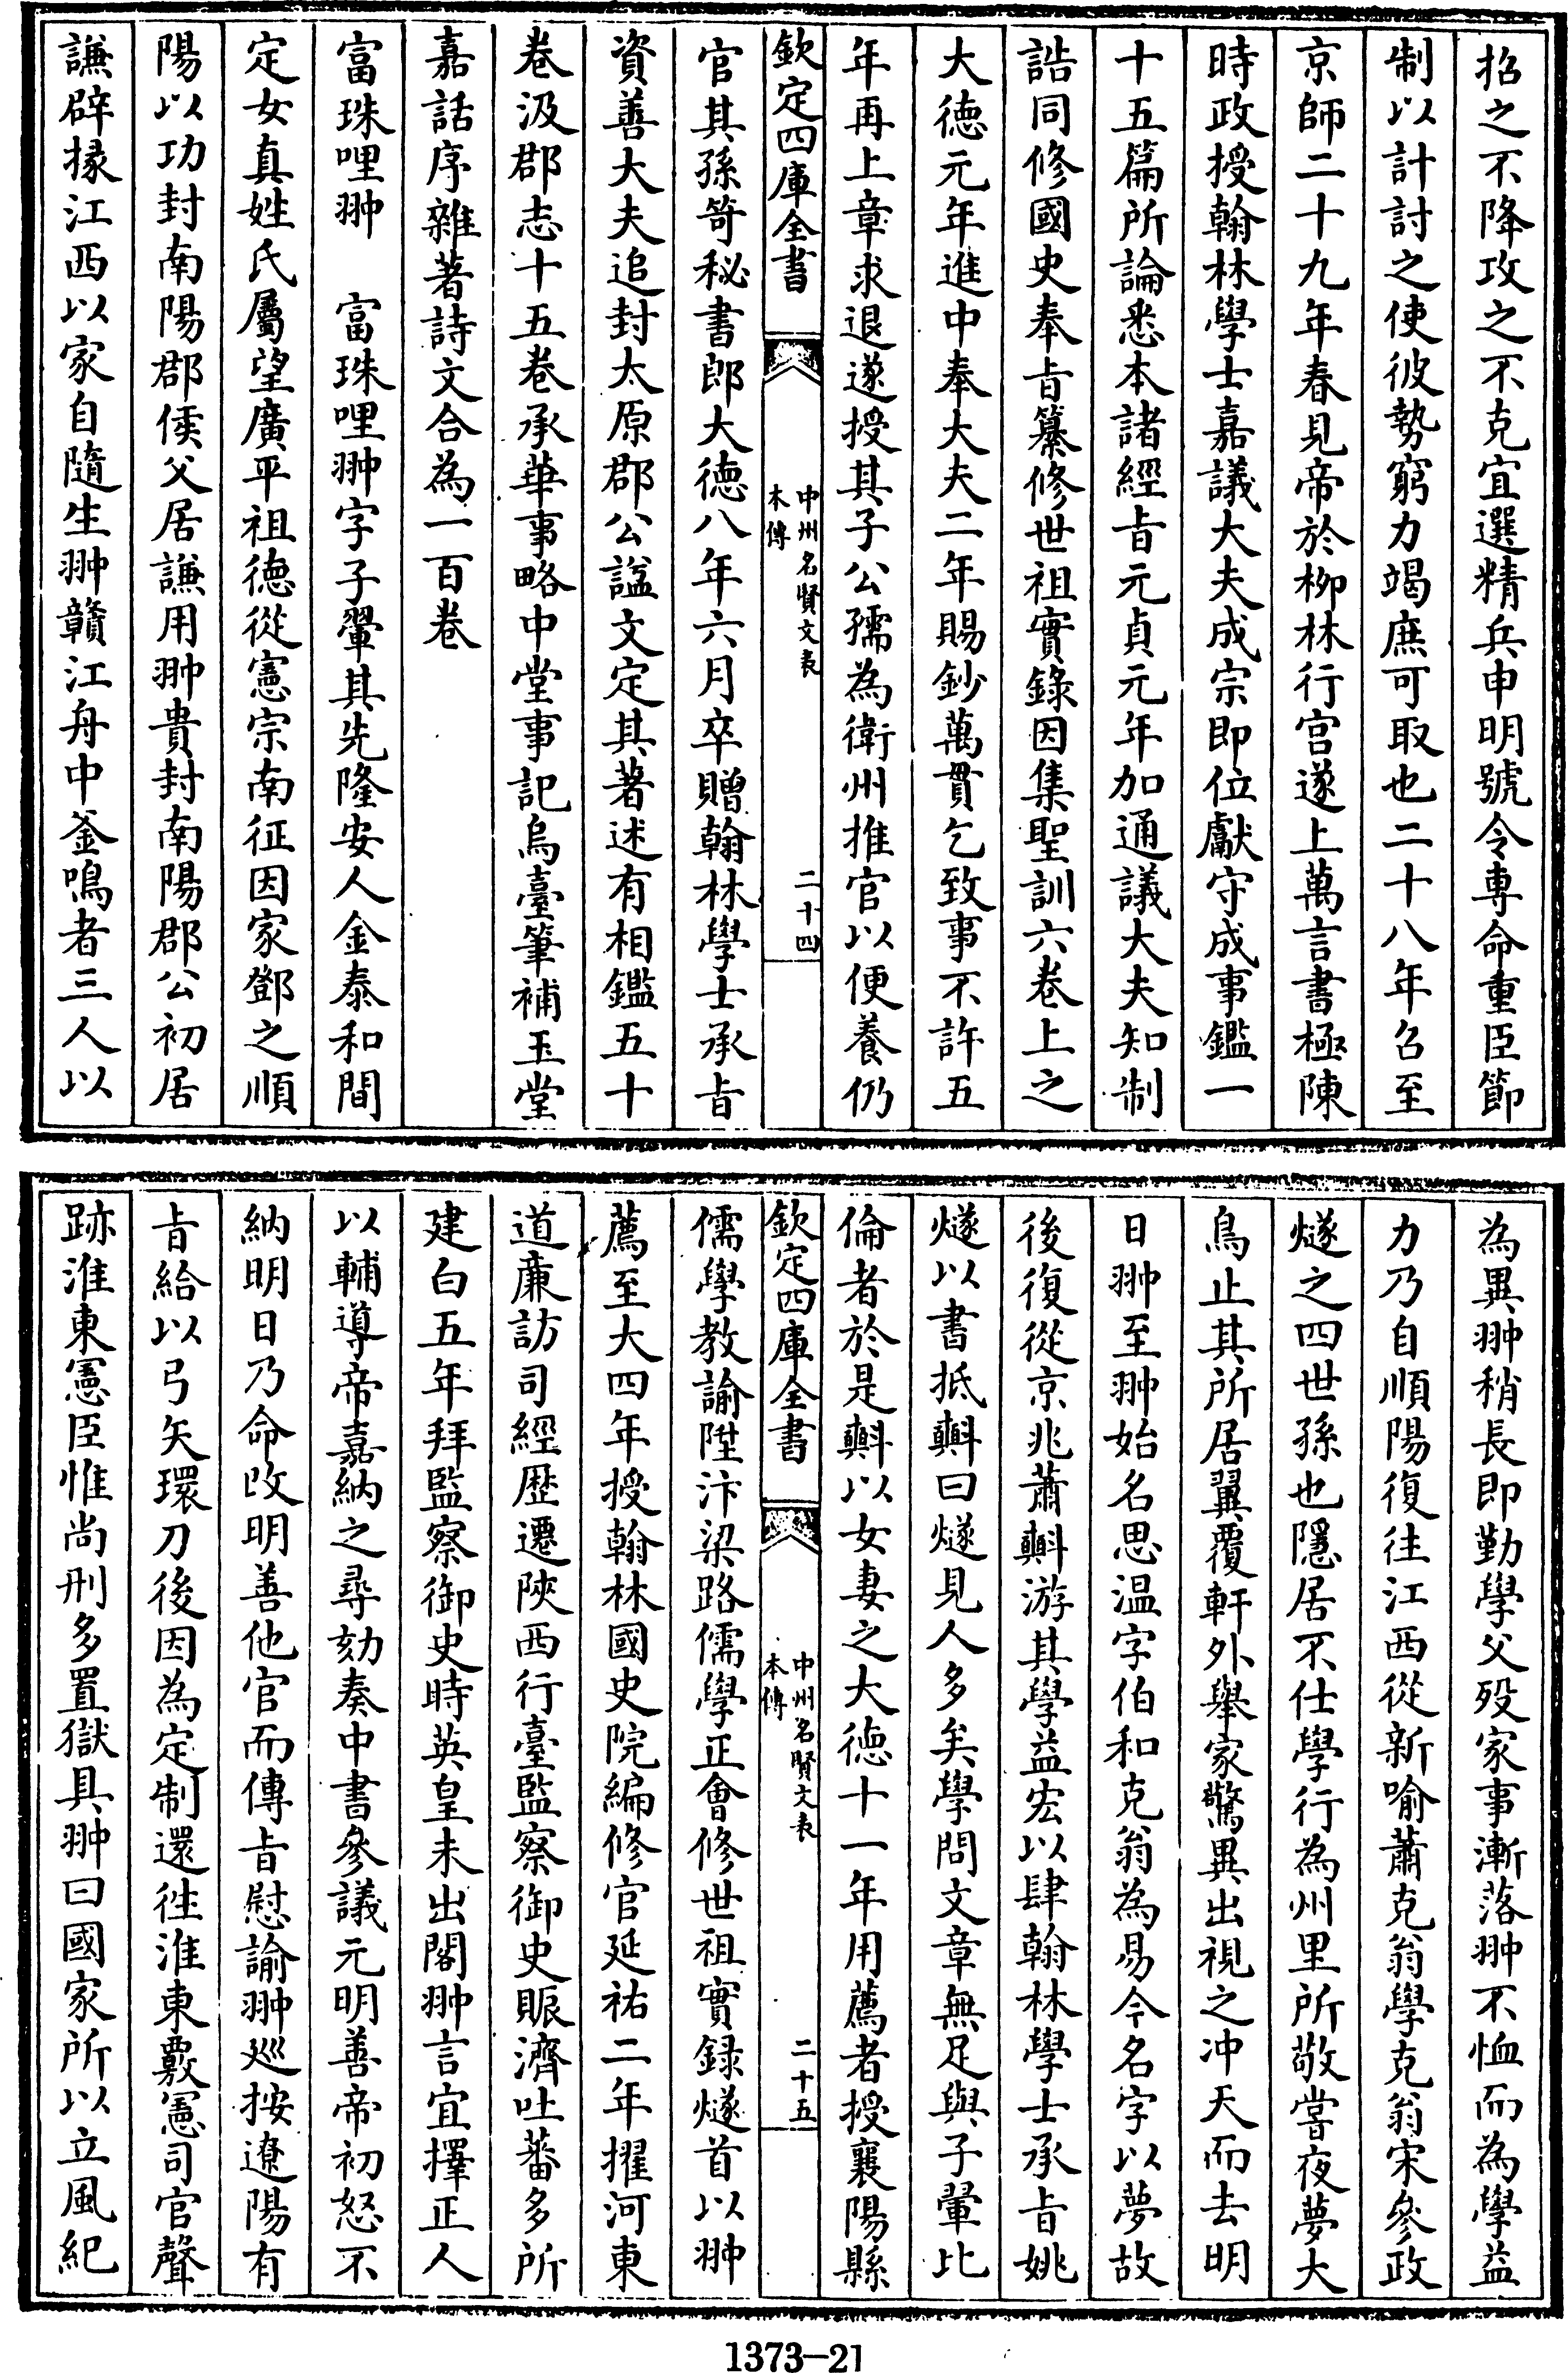 招之不降攻之不克宜選精兵申明號令専命重臣節
制以計討之使彼勢窮力竭庶可取也二十八年召至
京師二十九年春見帝於柳林行宫遂上萬言書極陳
時政授翰林學士嘉議大夫成宗即位獻守成事鑑一
十五篇所論悉本諸經㫖元貞元年加通議大夫知制
誥同修國史奉㫖纂修世祖實錄因集聖訓六卷上之
大徳元年進中奉大夫二年賜鈔萬貫乞致事不許五
年再上章求退遂授其子公孺為衛州推官以便養仍
欽定四庫全書
中州名賢文表
本傳
二十四
官其孫笴秘書郎大徳八年六月卒贈翰林學士承㫖
資善大夫追封太原郡公諡文定其著述有相鑑五十
卷汲郡志十五卷承華事略中堂事記烏臺筆補玉堂
嘉話序雜著詩文合為一百卷
富珠哩翀　富珠哩翀字子翬其先隆安人金泰和間
定女真姓氏屬望廣平祖徳從憲宗南征因家鄧之順
陽以功封南陽郡侯父居謙用翀貴封南陽郡公初居
謙辟掾江西以家自隨生翀贛江舟中釜鳴者三人以
為異翀稍長即勤學父殁家事漸落翀不恤而為學益
力乃自順陽復往江西從新喻蕭克翁學克翁宋參政
燧之四世孫也隱居不仕學行為州里所敬嘗夜夢大
鳥止其所居翼覆軒外舉家驚異出視之冲天而去明
日翀至翀始名思温字伯和克翁為易今名字以夢故
後復從京兆蕭𣂏游其學益宏以肆翰林學士承㫖姚
燧以書抵𣂏曰燧見人多矣學問文章無足與子翬比
倫者於是𣂏以女妻之大徳十一年用薦者授襄陽縣
欽定四庫全書
中州名賢文表
本傳
二十五
儒學教諭陞汴梁路儒學正會修世祖實録燧首以翀
薦至大四年授翰林國史院編修官延祐二年擢河東
道亷訪司經歴遷陜西行臺監察御史賑濟吐蕃多所
建白五年拜監察御史時英皇未出閣翀言宜擇正人
以輔導帝嘉納之尋劾奏中書參議元明善帝初怒不
納明日乃命改明善他官而傳㫖慰諭翀巡按遼陽有
㫖給以弓矢環刀後因為定制還徃淮東覈憲司官聲
跡淮東憲臣惟尚刑多置獄具翀曰國家所以立風紀
1373—21